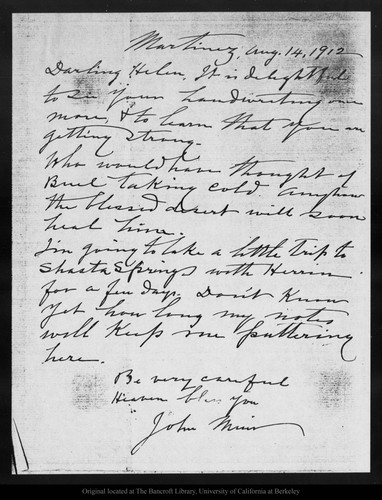 Martinez, Aug. 14, 1912
Darling Helen, It is delightful
to see your handwriting once
more, & to learn that you are
getting strong.
Who would have thought of
Buel taking cold. Anyhow
the blessed desert will soon
heal him.
I'm going to take a little trip to
Shasta Springs with Herrin
for a few days. Don't know
yet how long my notes
will keep me puttering
here.
Be very careful
Heaven bless you
John Muir
Original located at The Bancroft Library, University of California at Berkeley